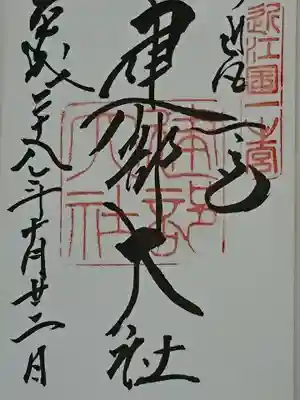 近江国一宮
近江国一之宮
建部大社
建部大社
平成二十八年十月廿二日